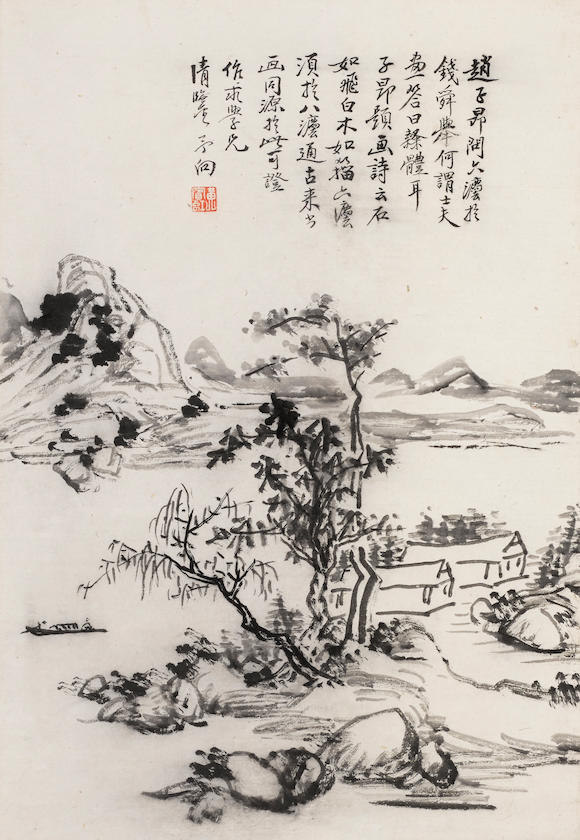 趙子昂問六灋於
錢舜舉何謂士夫
畫答曰隸體耳
子昂題画詩云石
如飛白木如籀六灋
須於八灋通古来書
画同源於此可證
作求學兄
清鑒 予向